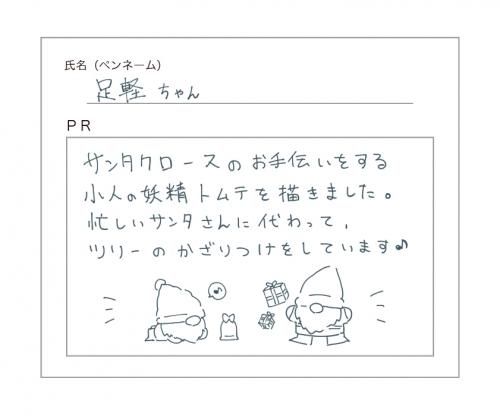 氏名（ペンネーム）
足軽 ちゃん
PR
サンタクロースのお手伝いをする
小人の妖精トムテを描きました。
忙しいサンタさんに代わって,
ツリーのかざりつけをしています♪
♪